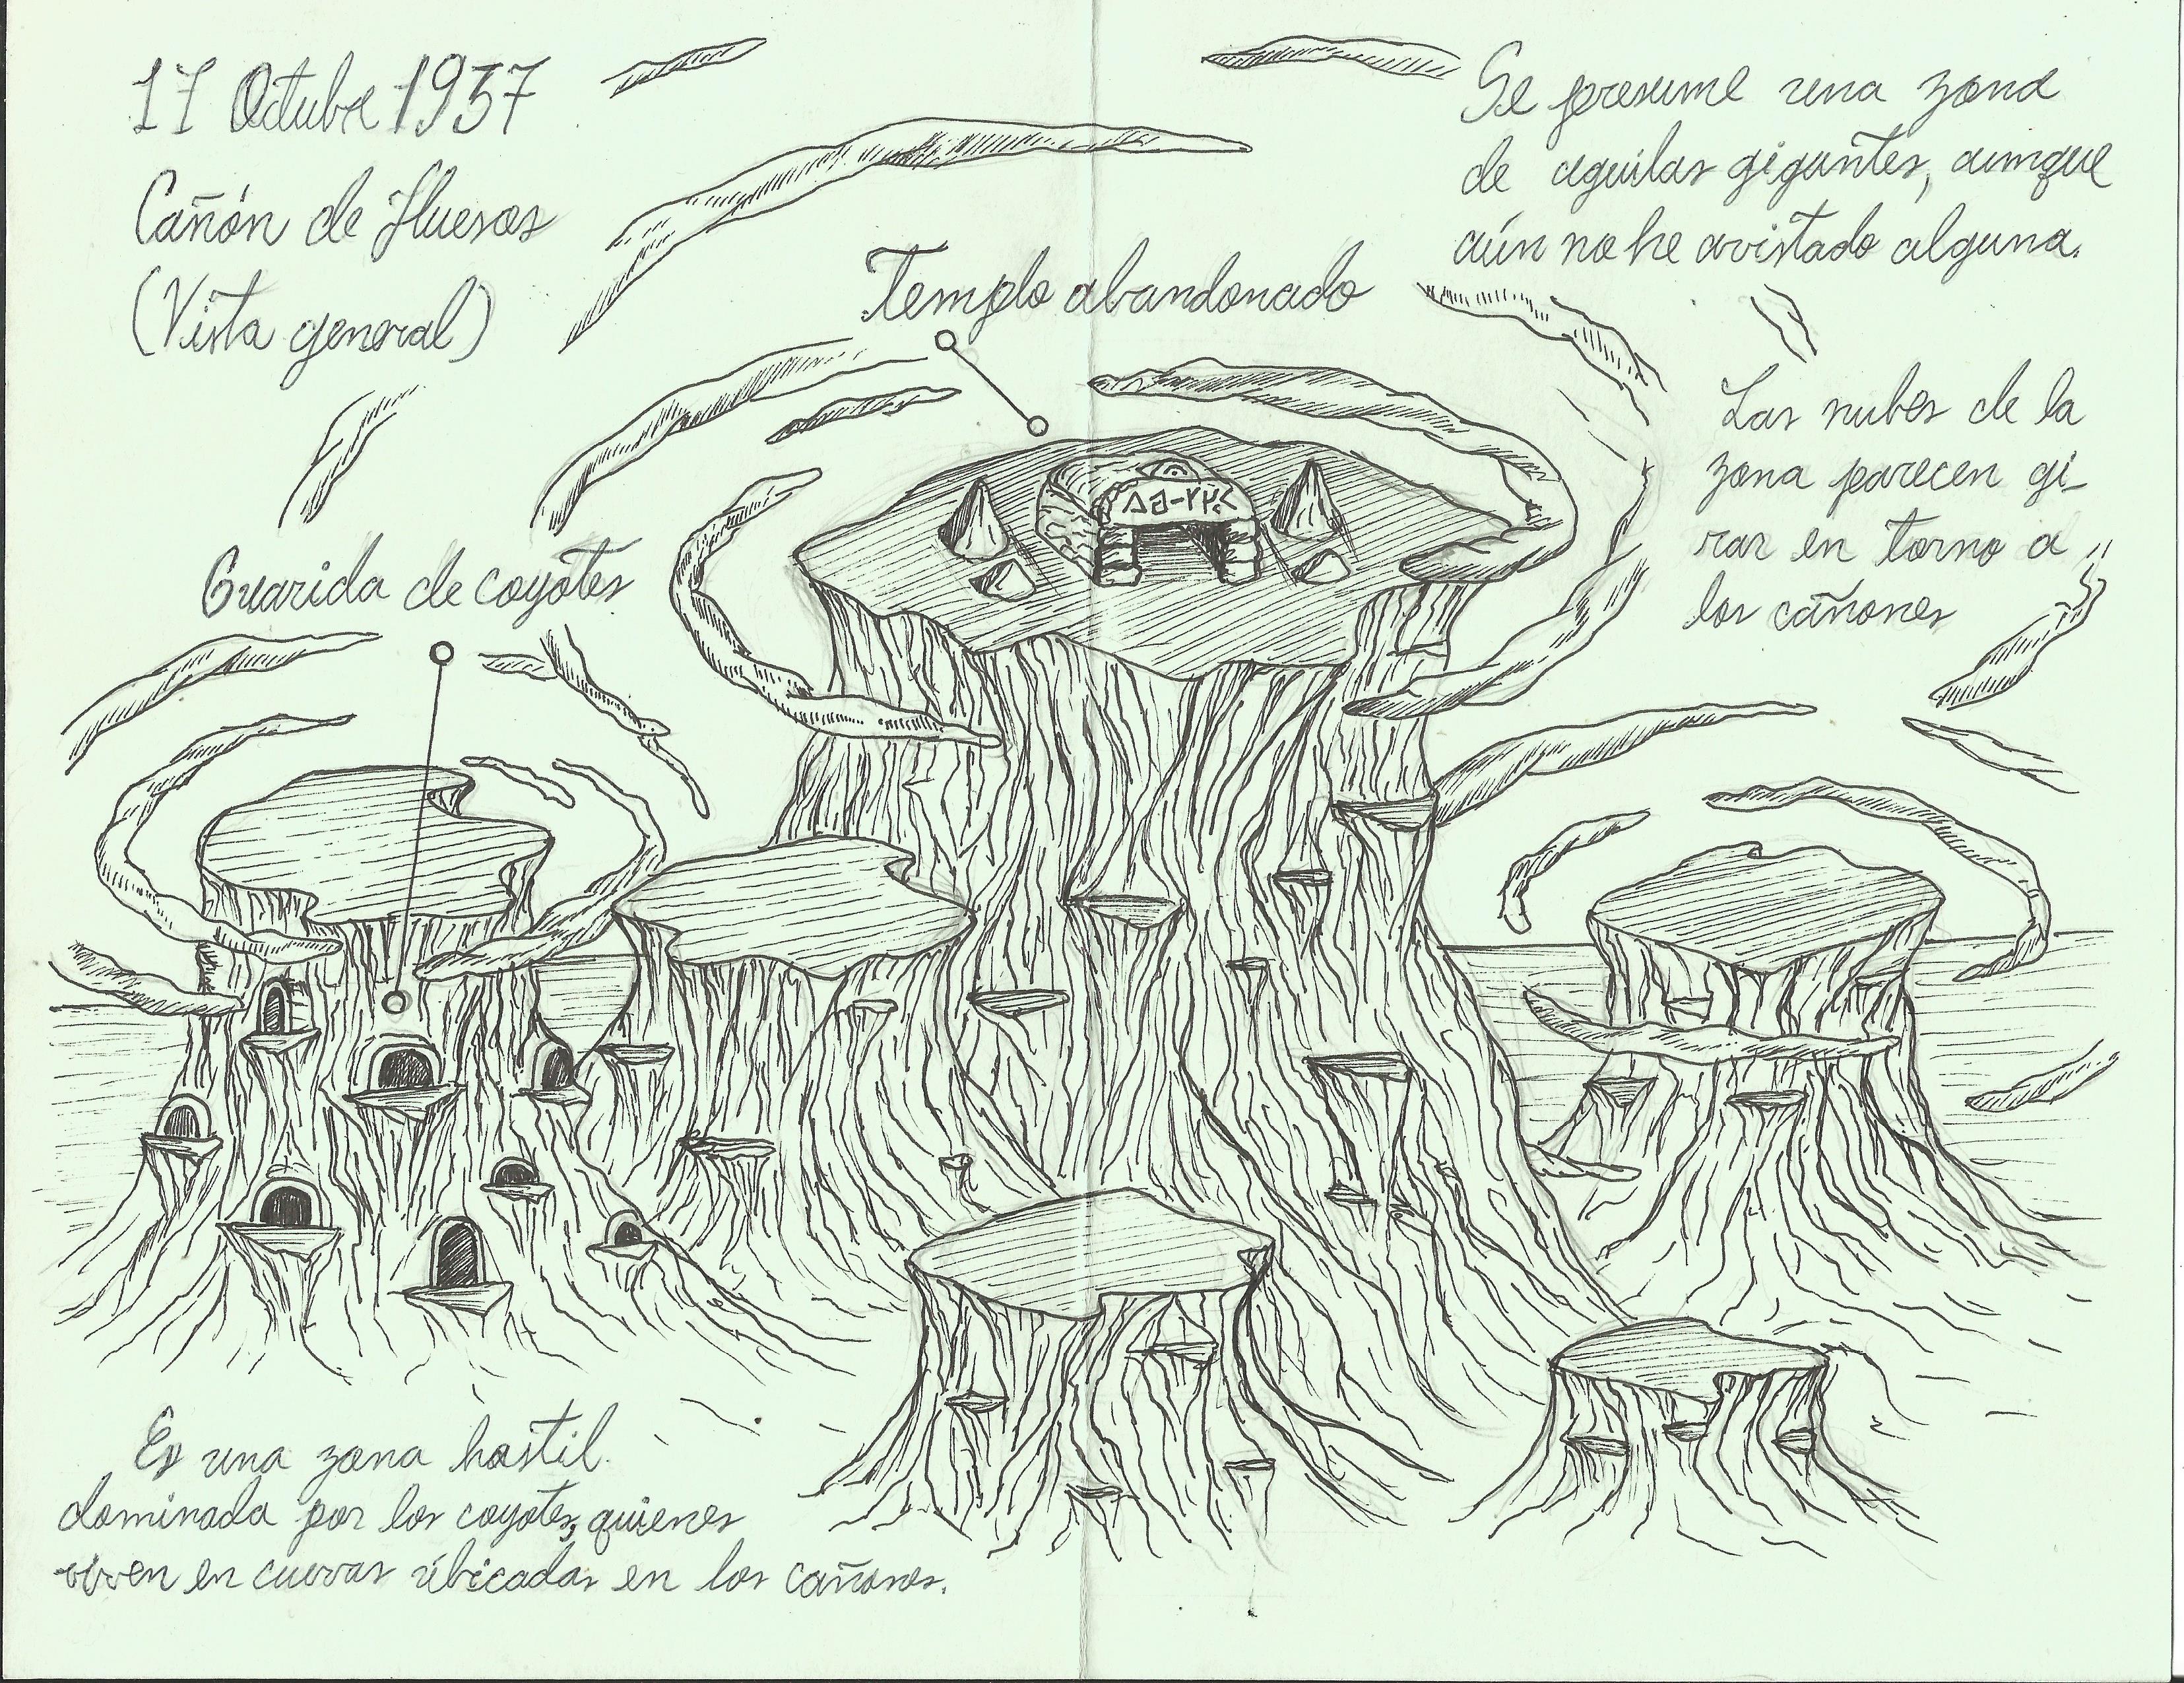 17 Octubre 1937
Cañón de Huesos
(Vista general)
Se presume una zona
de aguilas gigantes, aunque
aún no he avistado alguna.
Templo abandonado
Las nubes de la
zona parecen gi-
rar en torno a
los cañones
Guarida de coyotes
Es una zona hostil
dominada por los coyotes, quienes
viven en cuevas úbicadas en los cañones.